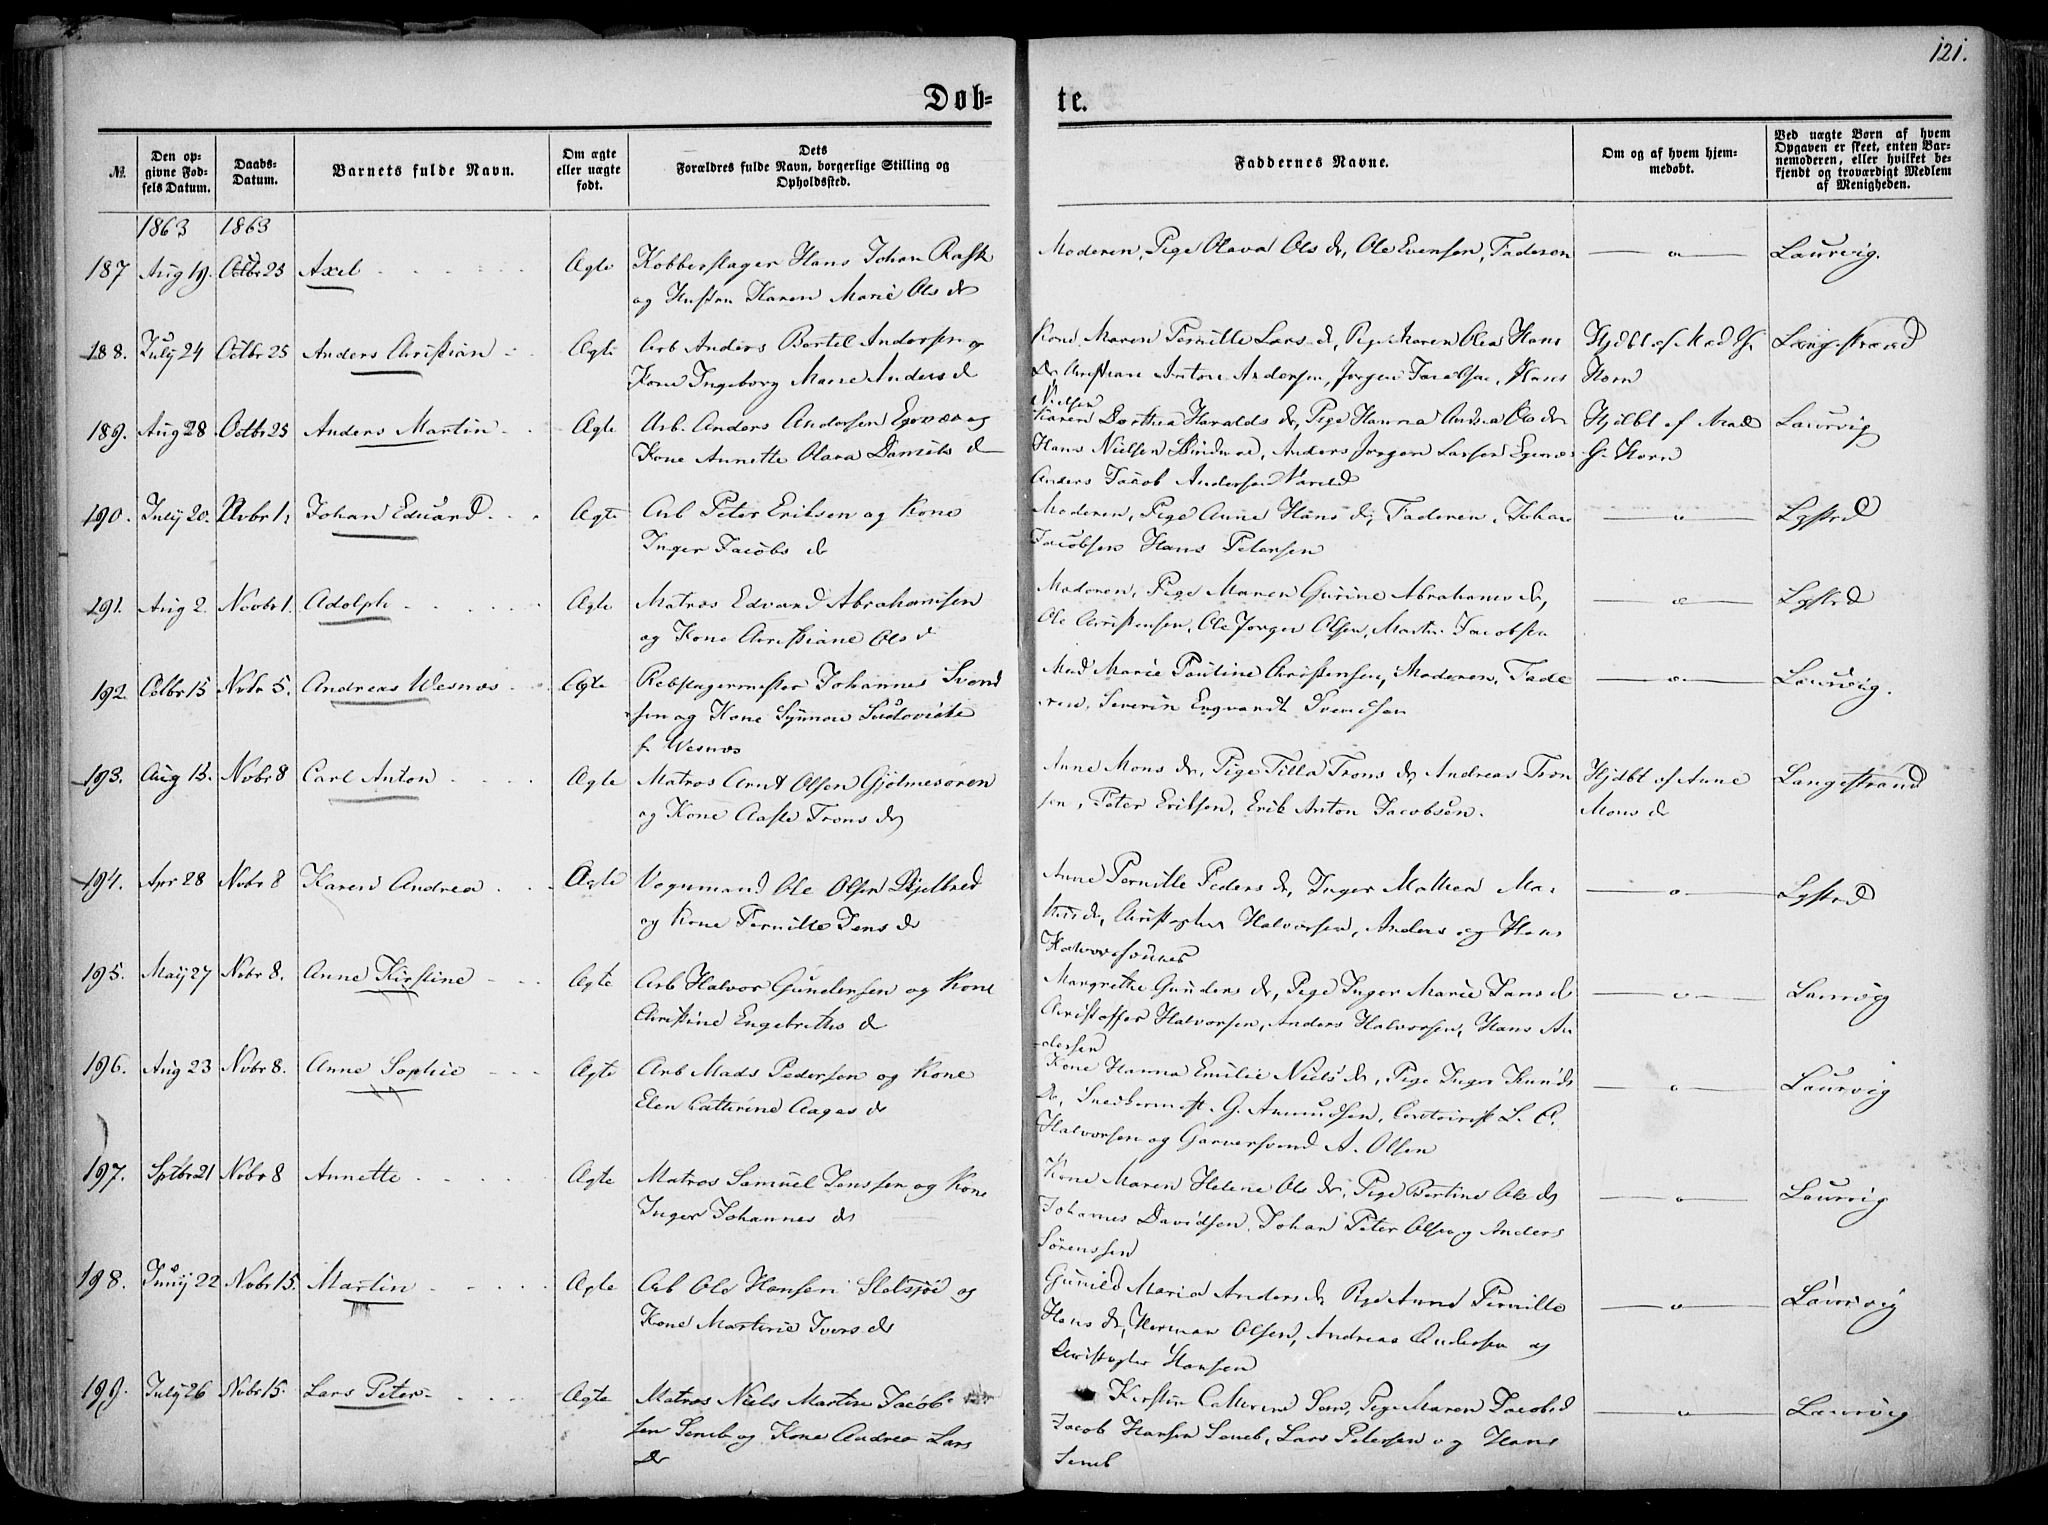 121.
Døb= te.
№
Den op-
givne Fød-
sels Datum.
Daabs-
Datum.
Barnets fulde Navn.
Om ægte
eller uægte
født.
Dets
Forældres fulde Navn, borgerlige Stilling og
Opholdssted.
Faddernes Navne.
Om og af hvem hjem-
medøbt.
Ved uægte Børn af hvem
Opgaven er skeet, enten Bar-
nemoderen, eller hvilket be-
kjendt og troværdigt Medlem
af Menigheden.
1863 1863
187 Aug 19. Octbr 25 Axel Ægte Kobberslager Hans Johan Rask
og Hustru Karen Marie Ols dr
Moderen, Pige Olava Ols dr, Ole Evensen, Faderen
— " — Laurvig.
188. July 24 Octbr 25 Anders Christian Ægte Arb Anders Bertel Andersen og
Kone Ingeborg Marie Anders d
Kone Maren Pernille Lars d, Pige Maren Olea Hans
dr Christian Anton Andersen, Jørgen Jacobsen, Hans
Nielsen
Hjdbt af Mad G.
Horn
Langestrand
189. Aug 28 Octbr 25 Anders Martin Ægte Arb. Anders Andersen Egenæs og
Kone Annette Olava Daniels d
Karen Dorthea Haralds dr, Pige Hanna Andrea Ols dr
Hans Nielsen, Anders Jørgen Larsen Egenæs
Anders Jacob Andersen
Hjdbt af Mad
G. Horn
Laurvig
190. July 20. Nvbr 1. Johan Eduard Ægte Arb Peter Eriksen og Kone
Inger Jacobs dr
Moderen, Pige Anne Hans dr, Faderen, Johan
Jacobsen Hans Petersen
— " — Lgstrd
191. Aug 2. Novbr 1. Adolph Ægte Matros Edvard Abrahamsen
og Kone Christiane Ols d
Moderen, Pige Maren Gurine Abrahams dr,
Ole Christensen, Ole Jørgen Olsen, Martin Jacobsen
— " — Lgstrd
192. Octbr 15 Nvbr 5. Andreas Wesnæs Ægte Rebslagermester Johannes Svend
sen og Kone Synnove Ludovicte
f. Wesnæs
Mad Marie Pauline Christensen, Moderen, Fade
ren, Severin Engvardt Svendsen
— " — Laurvig.
193. Aug 15. Nvbr 8 Carl Anton Ægte Matros Arnt Olsen Gjølmesøren
og Kone Aaste Trons dr
Anne Mons dr, Pige Tilla Trons dr Andreas Tron
sen, Peter Eriksen, Erik Anton Jacobsen.
Hjdbt af Anne
Mons d
Langestrand
194. Apr 28 Nvbr 8 Karen Andrea Ægte Vognmand Ole Olsen Skjelbred
og Kone Pernille Jens dr
Anne Pernille Peders dr, Inger Mathea Ma-
dr, Christopher Halvorsen, Anders og Hans
Halvorsønner
— " — Lgstrd
195. Maij 27 Nvbr 8. Anne Kirstine Ægte Arb Halvor Gundersen og Kone
Christine Engebreths d
Margrethe Gunders dr, Pige Inger Marie Jans d
Christoffer Halvorsen, Anders Halvorsen, Hans An
dersen
— " — Laurvig
196. Aug 23 Nvbr 8. Anne Sophie Ægte Arb Mads Pedersen og Kone
Elen Cathrine Aages dr
Kone Hanna Emilie Niels dr, Pige Inger Knuds
dr, Snedkermest. G. Amundsen, Contoirist L. C.
Halvorsen og Garversvend A. Olsen
— " — Laurvig
197. Sptbr 21 Nvbr 8 Annette Ægte Matros Samuel Jenssen og Kone
Inger Johannes dr
Kone Maren Helene Ols dr, Pige Bertine Ols dr
Johannes Davidsen, Johan Peter Olsen og Anders
Sørenssen
— " — Laurvig
198. Junij 22 Nvbr 15. Martin Ægte Arb Ole Hansen Sletsjøe og
Kone Martine Ivers dr
Gunild Maria Anders dr Pige Anne Pernille
Hans dr, Herman Olsen, Andreas Andersen og
Christopher Hansen
— " — Laurvig
199. July 26 Nvbr 15. Lars Peter Ægte Matros Niels Martin Jacob-
sen Seneb og Kone Andrea Lars
dr
Kirstin Cathrine Sem, Pige Maren Jacobsd
Jacob Hansen Seneb, Lars Petersen og Hans
Seneb
— " — Laurvig